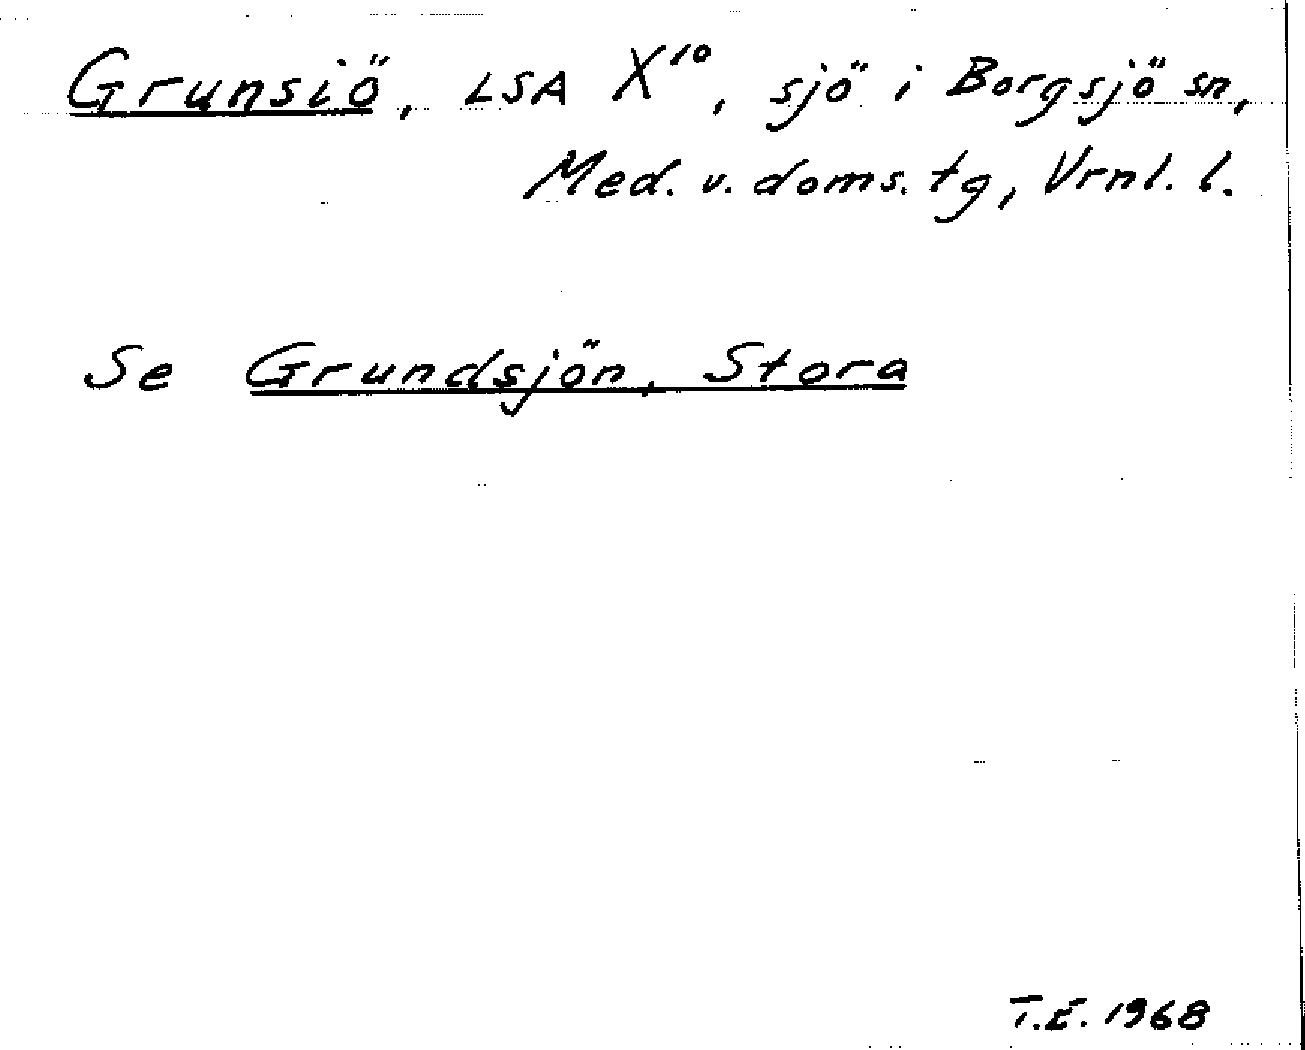 Grunsiö, LSA X¹⁰, sjö i Borgsjö sn,
Med. v. doms. tg, Vrnl. l.
Se Grundsjön, Stora
T.E. 1968